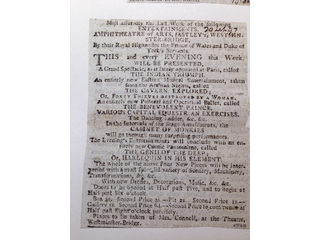 Most assuredly the last Week of the following
ENTERTAINMENTS.
AMPHITHEATRE of ARTS, (ASTLEY's) WESTMIN-
STER-BRIDGE.
By their Royal Highnesses the Prince of Wales and Duke of
York's Servants.
THIS and every EVENING this Week,
WILL BE PRESENTED,
A Grand Spectacle, as at lately at Paris, called
THE INDIAN TRIUMPH.
An entirely new Eastern Musical Entertainment, taken
from the Arabian Nights, called
THE CAVERN EXPLORED;
Or, FORTY THIEVES DESTROYED by a WOMAN.
An entirely new Pastoral and Operatical Ballet, called
THE BENEVOLENT PRINCE.
VARIOUS CAPITAL EQUESTRIAN EXERCISES.
The Dancing Ladder, &c. &c.
In the Intervals of the Stage Amusements, the
CABINET OF MONKIES
will go through many surprising performances.
The Evening's Entertainments will conclude with an en-
tirely new Comic Pantomime, called
THE GENII OF THE DEEP;
Or, HARLEQUIN IN HIS ELEMENT.
The Whole of the above Four New Pieces will be inter-
spersed with a great variety of Scenery, Machinery,
Transformations, &c. &c.
With new Dresses, Decorations, Music, &c. &c.
Doors to be opened at Half past Five, and to begin at
Half past Six o'clock.
Box 4s. Second Price 2s.—Pit 2s. Second Price 1s.—
Gallery 1s. Second Price 6d.—Second Price to commence at
Half past Eight o'clock precisely.
Places to be taken of Mrs. Connell, at the Theatre,
Westminster-Bridge.